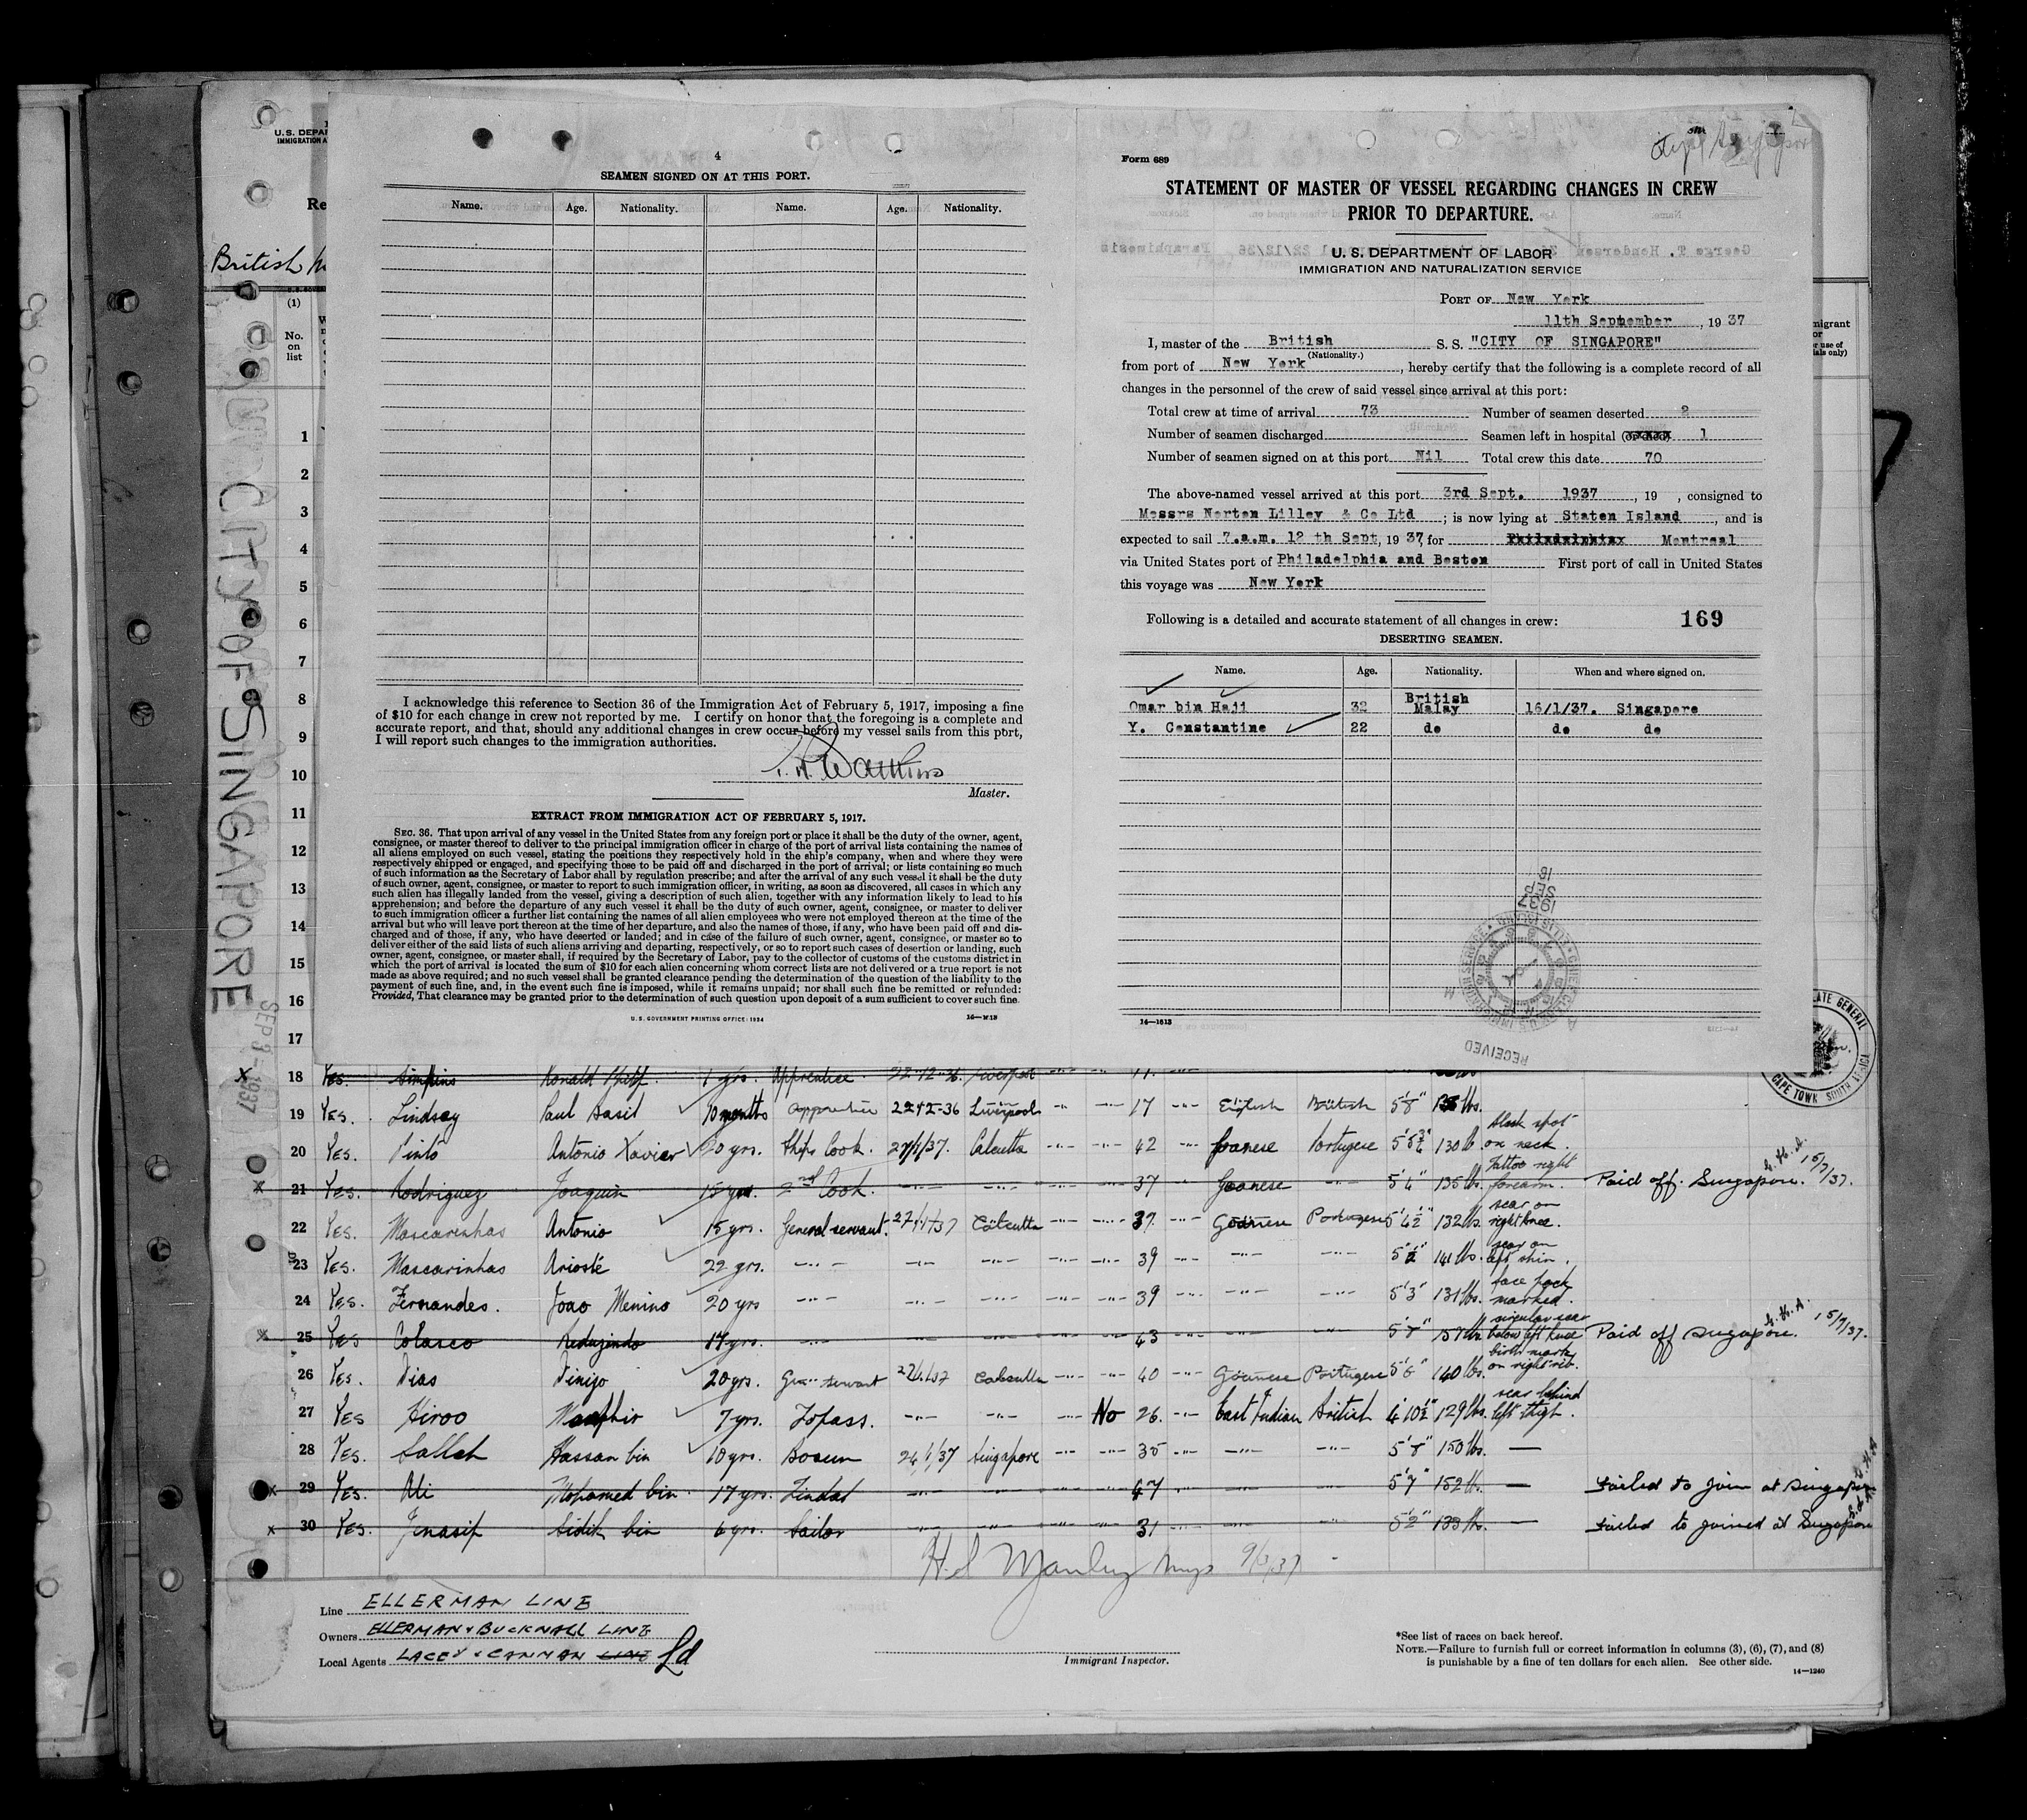 U.S. DEPAR
IMMIGRATION A
Re
British
(1)
No.
on
list
CITY OF SINGAPORE
SEP 3 - 1937
4
SEAMEN SIGNED ON AT THIS PORT.
Name. Age. Nationality. Name. Age. Nationality.
I acknowledge this reference to Section 36 of the Immigration Act of February 5, 1917, imposing a fine
of $10 for each change in crew not reported by me. I certify on honor that the foregoing is a complete and
accurate report, and that, should any additional changes in crew occur before my vessel sails from this port,
I will report such changes to the immigration authorities.
Master.
EXTRACT FROM IMMIGRATION ACT OF FEBRUARY 5, 1917.
SEC. 36. That upon arrival of any vessel in the United States from any foreign port or place it shall be the duty of the owner, agent,
consignee, or master thereof to deliver to the principal immigration officer in charge of the port of arrival lists containing the names of
all aliens employed on such vessel, stating the positions they respectively hold in the ship's company, when and where they were
respectively shipped or engaged, and specifying those to be paid off and discharged in the port of arrival; or lists containing so much
of such information as the Secretary of Labor shall by regulation prescribe; and after the arrival of any such vessel it shall be the duty
of such owner, agent, consignee, or master to report to such immigration officer, in writing, as soon as discovered, all cases in which any
such alien has illegally landed from the vessel, giving a description of such alien, together with any information likely to lead to his
apprehension; and before the departure of any such vessel it shall be the duty of such owner, agent, consignee, or master to deliver
to such immigration officer a further list containing the names of all alien employees who were not employed thereon at the time of the
arrival but who will leave port thereon at the time of her departure, and also the names of those, if any, who have been paid off and dis-
charged and of those, if any, who have deserted or landed; and in case of the failure of such owner, agent, consignee, or master so to
deliver either of the said lists of such aliens arriving and departing, respectively, or so to report such cases of desertion or landing, such
owner, agent, consignee, or master shall, if required by the Secretary of Labor, pay to the collector of customs of the customs district in
which the port of arrival is located the sum of $10 for each alien concerning whom correct lists are not delivered or a true report is not
made as above required; and no such vessel shall be granted clearance pending the determination of the question of the liability to the
payment of such fine, and, in the event such fine is imposed, while it remains unpaid; nor shall such fine be remitted or refunded:
Provided, That clearance may be granted prior to the determination of such question upon deposit of a sum sufficient to cover such fine.
U. S. GOVERNMENT PRINTING OFFICE: 1934
Form 689
STATEMENT OF MASTER OF VESSEL REGARDING CHANGES IN CREW
PRIOR TO DEPARTURE.
U. S. DEPARTMENT OF LABOR
IMMIGRATION AND NATURALIZATION SERVICE
PORT OF New York
11th September, 1937
I, master of the British S. S. "CITY OF SINGAPORE"
(Nationality.)
from port of New York, hereby certify that the following is a complete record of all
changes in the personnel of the crew of said vessel since arrival at this port:
Total crew at time of arrival 73 Number of seamen deserted 2
Number of seamen discharged Seamen left in hospital (or died) 1
Number of seamen signed on at this port Nil Total crew this date 70
The above-named vessel arrived at this port 3rd Sept. 1937, 19 , consigned to
Messrs Norton Lilley & Co Ltd; is now lying at Staten Island, and is
expected to sail 7.a.m. 12 th Sept, 1937, for Philadelphia Montreal
via United States port of Philadelphia and Boston First port of call in United States
this voyage was New York
Following is a detailed and accurate statement of all changes in crew: 169
DESERTING SEAMEN.
Name. Age. Nationality. When and where signed on.
Omar bin Haji 32 British Malay 16/1/37. Singapore
Y. Constantine 22 do do do
14—1513
RECEIVED
SEP 16 1937
migrant
or
r use of
ials only)
CAPE TOWN SOUTH AFRICA
1
2
3
4
5
6
7
8
9
10
11
12
13
14
15
16
17
18 Yes. Simpkins Ronald 1 yrs. Apprentice 22-12-36 Liverpool
19 Yes. Lindsay Paul Basil 10 months Apprentice 22-12-36 Liverpool 17 English British 5'8" lbs.
20 Yes. Pinto Antonio Xavier 20 yrs. Ships Cook. 27/1/37. Calcutta 42 Goanese Portugese 130 lb black spot on neck.
21 Yes. Rodriguez Joaquin 15 yrs. 2nd Cook. 37 Goanese 5'4" 135 lbs. Tattoo right forearm. Paid off. Singapore. 15/7/37.
22 Yes. Mascarinhas Antonio 15 yrs. General servant. 27/1/37 Calcutta 37 Goanese Portugese 5'4½" 132 lbs. scar on right knee.
23 Yes. Mascarinhas 22 yrs. 39 141 lbs. scar on left shin.
24 Yes. Fernandes. Joao Menino 20 yrs 39 5'3" 131 lbs. face pock marked.
25 Yes Colasco 17 yrs. 43 circular scar below left knee Paid off Singapore. 15/7/37.
26 Yes. Dias 20 yrs. Gen servant 27/1/37 Calcutta 40 Goanese Portugese 140 lbs. birth mark on right rib.
27 Yes Hiroo 7 yrs. Topass. No 26. East Indian British 4'10½" 129 lbs. scar behind left thigh.
28 Yes. Salleh Hassan bin 10 yrs. Bosun 24/1/37 Singapore 35 150 lbs. —
29 Yes. Ali Mohamed bin 17 yrs. Tindal 47 5'7" 152 lb. — Failed to join at Singapore
30 Yes. Sidik bin 6 yrs. Sailor 31 5'2" 133 lbs. — Failed to joined at Singapore
Line ELLERMAN LINE
Owners ELLERMAN & BUCKNALL LINE
Local Agents LACEY & CANMAN LINE Ld
Immigrant Inspector.
*See list of races on back hereof.
NOTE.—Failure to furnish full or correct information in columns (3), (6), (7), and (8)
is punishable by a fine of ten dollars for each alien. See other side.
14—1240